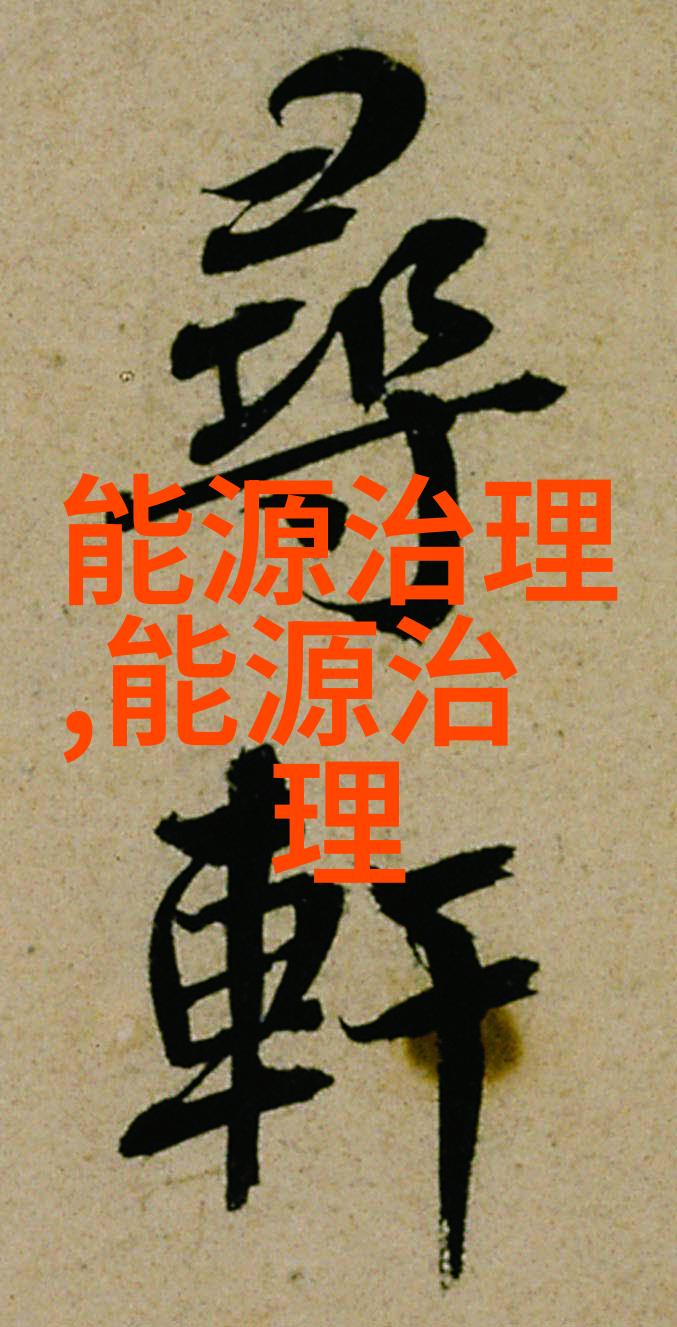 尋
能源治理
,能源治
理
軒